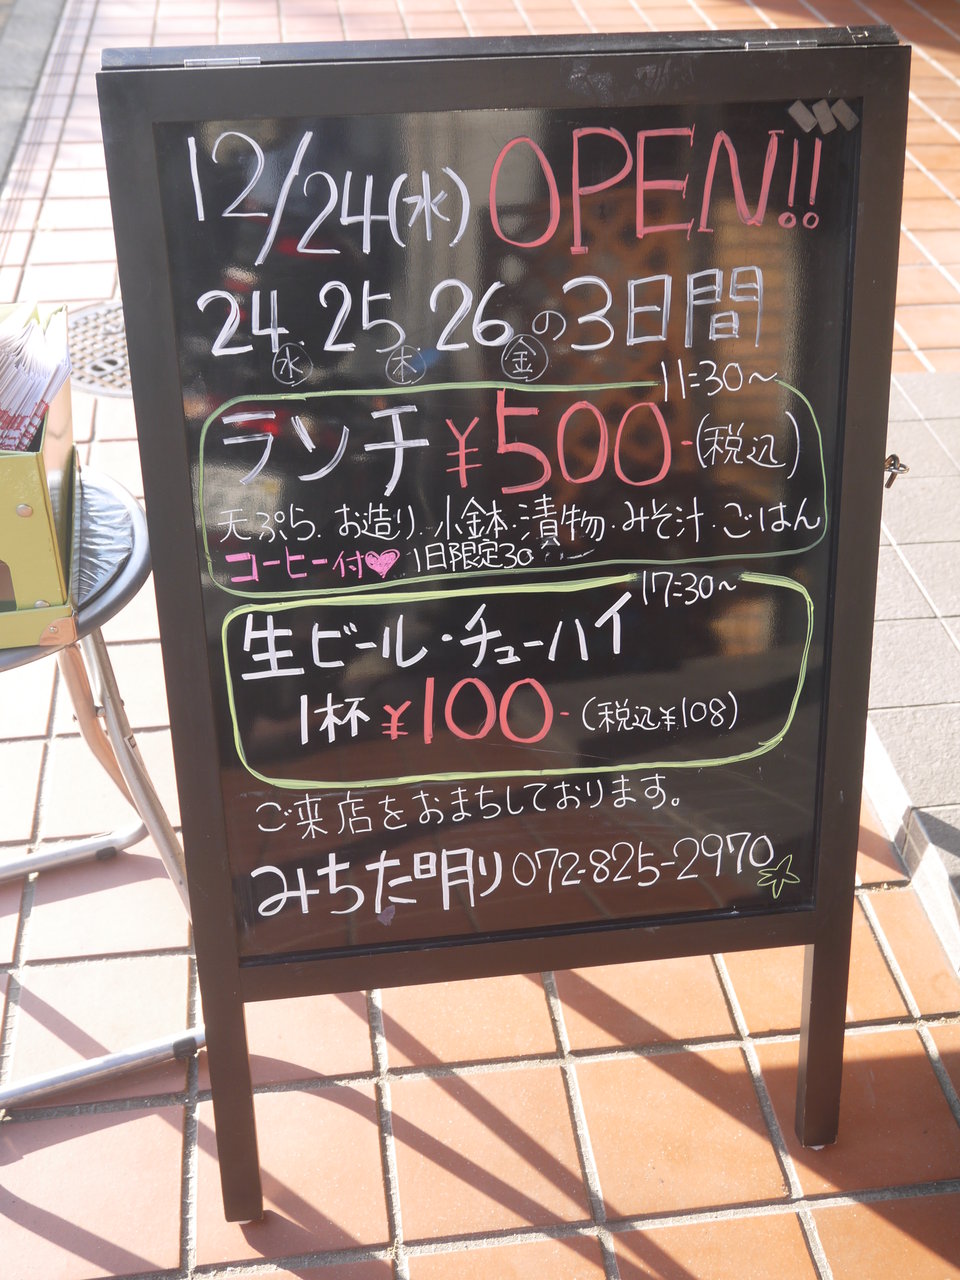 12/24(水) OPEN!!
24. 25 26の3日間
水 木 金
11:30～
ランチ ¥500-(税込)
天ぷら. お造り. 小鉢・漬物・みそ汁・ごはん
コーヒー付♥ 1日限定30
17:30～
生ビール・チューハイ
1杯 ¥100-(税込¥108)
ご来店をおまちしております。
みちた明り 072-825-2970